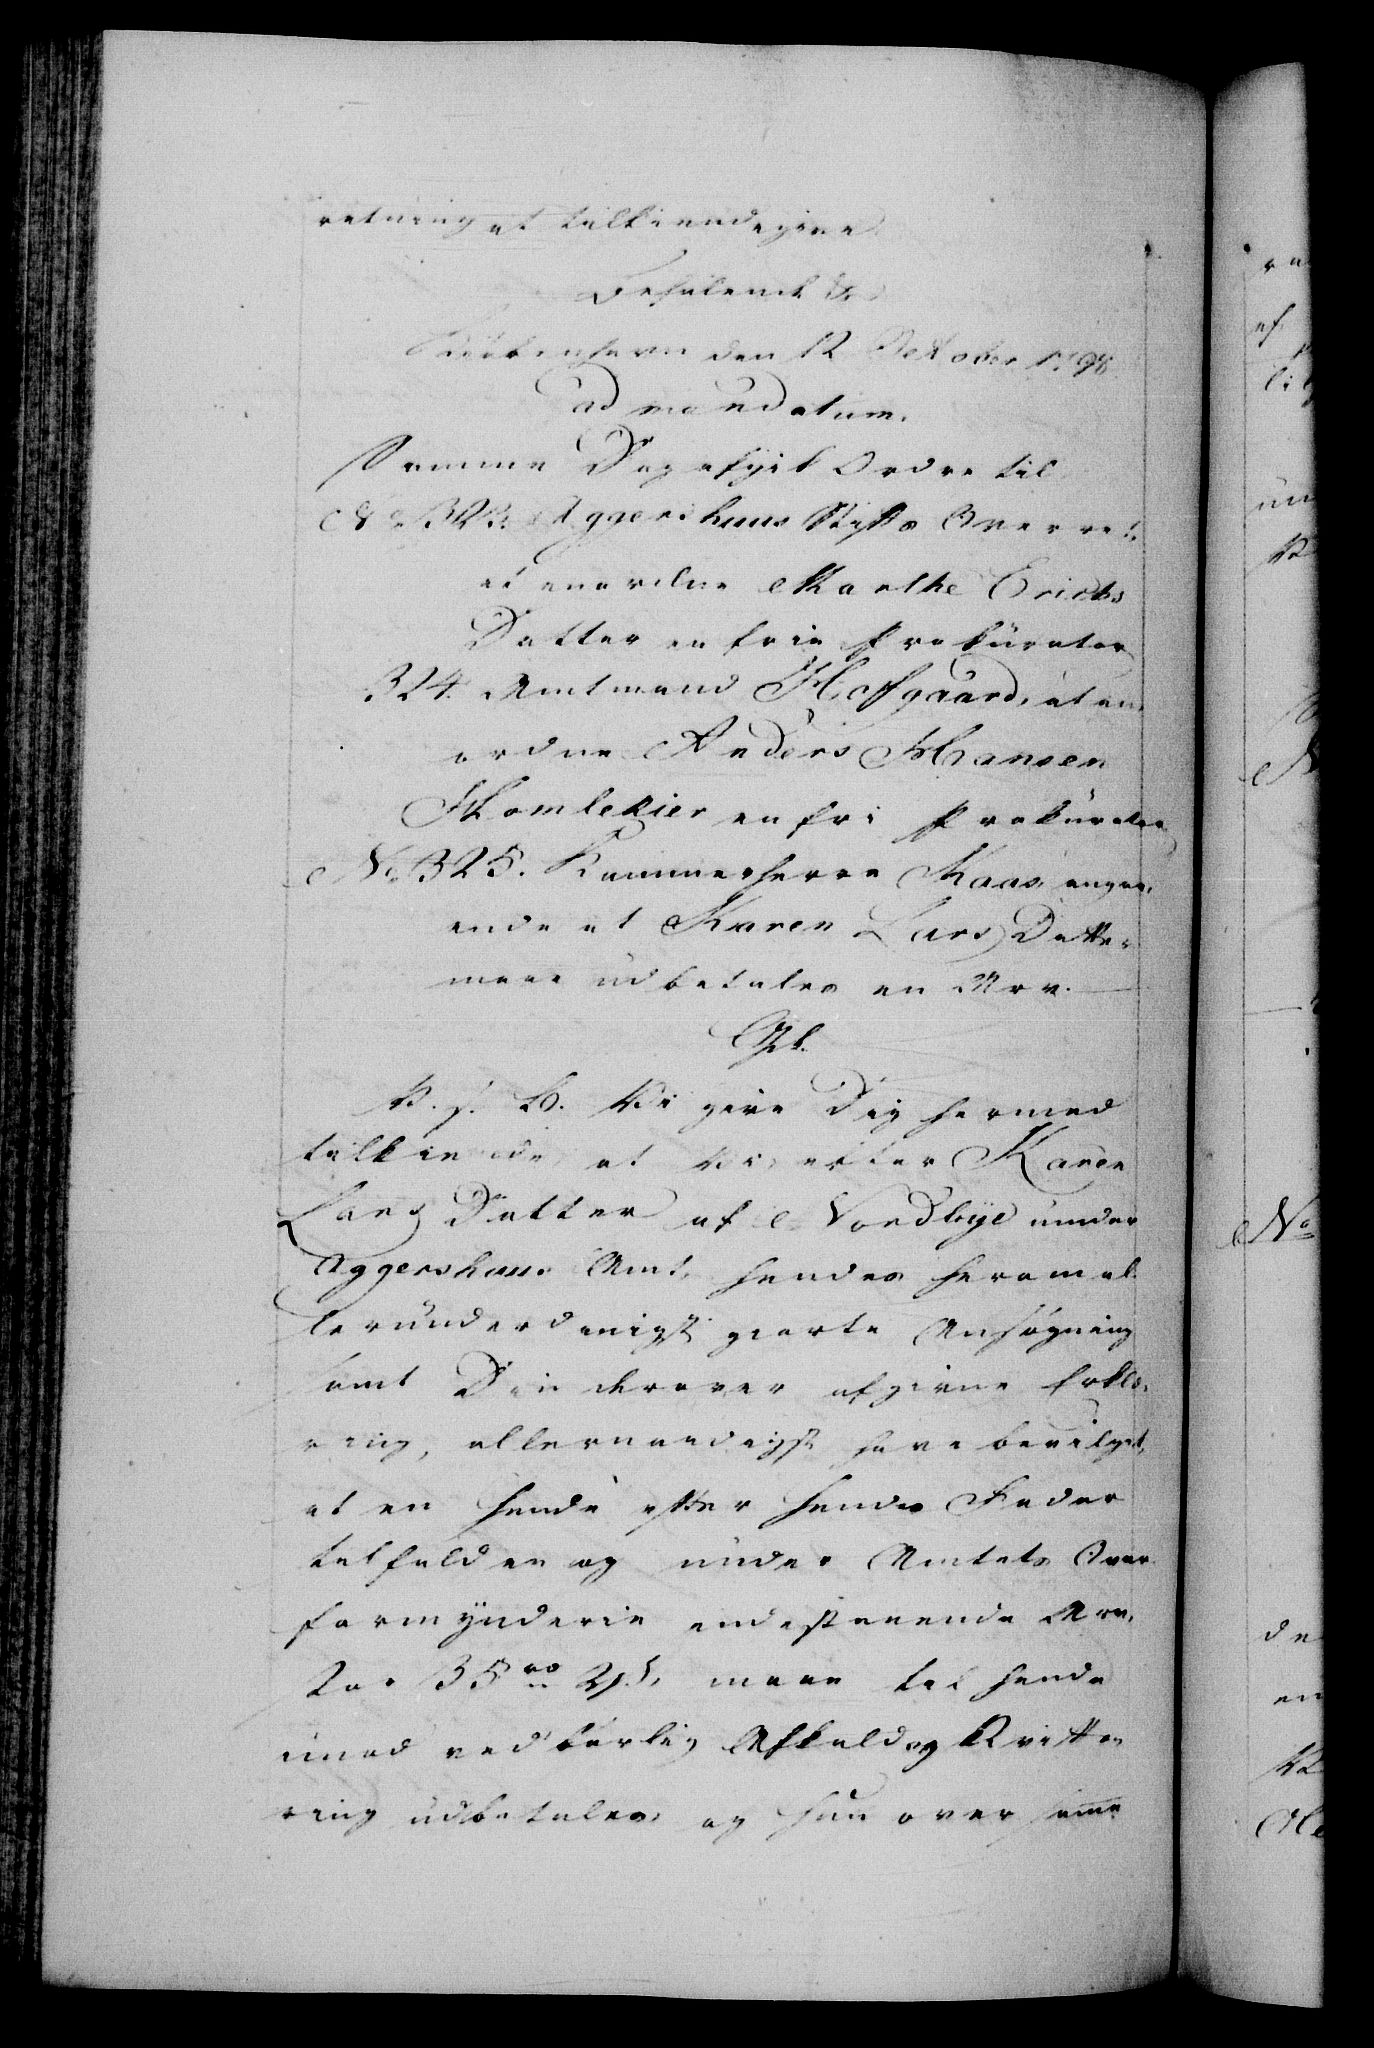 retning at tilkiendegive.
Befalende &c
Kiøbenhavn den 12 Oktober 1798
ad mandatum.
Samme Dag afgik Ordre til
No 323. Aggershuus Stifts Overret.
at anordne Marthe Erichs
Datter en frie Prokurator
324. Amtmand Hofgaard, at an¬
ordne Anders Hansen
en fri Prokurator
No 325. Kammerherre Kaas, angaa¬
ende at Karen Lars Datter
maae udbetales en Arv.
Gk.
V. s. B. Vi give Dig hermed
tilkiende, at Vi, efter Karen
Lars Datter af Nordbye under
Aggershuus Amt, hendes herom al¬
lerunderdanigst giorte Ansøgning
samt Din derover afgivne Erklæ¬
ring, allernaadigst have bevilget,
at en hende efter hendes Fader
tilfalden og under Amtets Over
formynderie indestaaende Arv,
stor 35 rd 2 s, maae til hende
imod vedbørlig Afkald og Qvitte¬
ring udbetales, og hun over samme